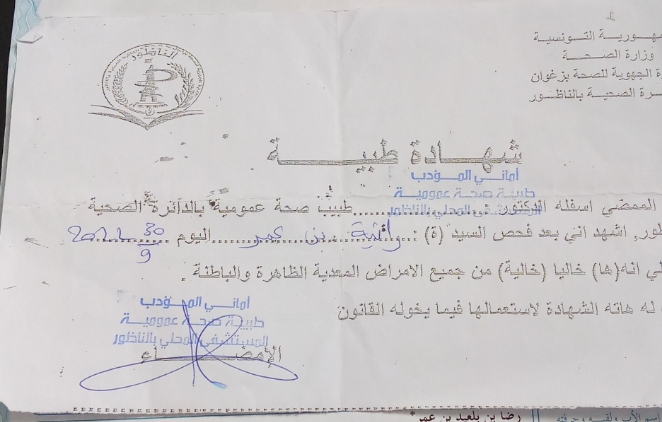 الناظور
ـهـوريـة التـونسيـة
وزارة الصـحـة
ة الجهوية للصحة بزغوان
ـرة الصحية بالناظـور
شهـادة طبيـة
أماني المـؤدب
طبيبة صحة عمومية
المستشفى المحلي بالناظور
الممضي اسفله الدكتور طبيب صحة عمومية بالدائرة الصحية
ظور, اشهد اني بعد فحص السيد (ة) : رانية بن عمر اليوم 30
9
لي انه(ها) خاليا (خالية) من جميع الامراض المعدية الظاهرة والباطنة .
له هاته الشهادة لاستعمالها فيما يخوله القانون
أماني المـؤدب
طبيبة صحة عمومية
المستشفى المحلي بالناظور
الإمضـاء
رضا بن بلعيد بن عمر